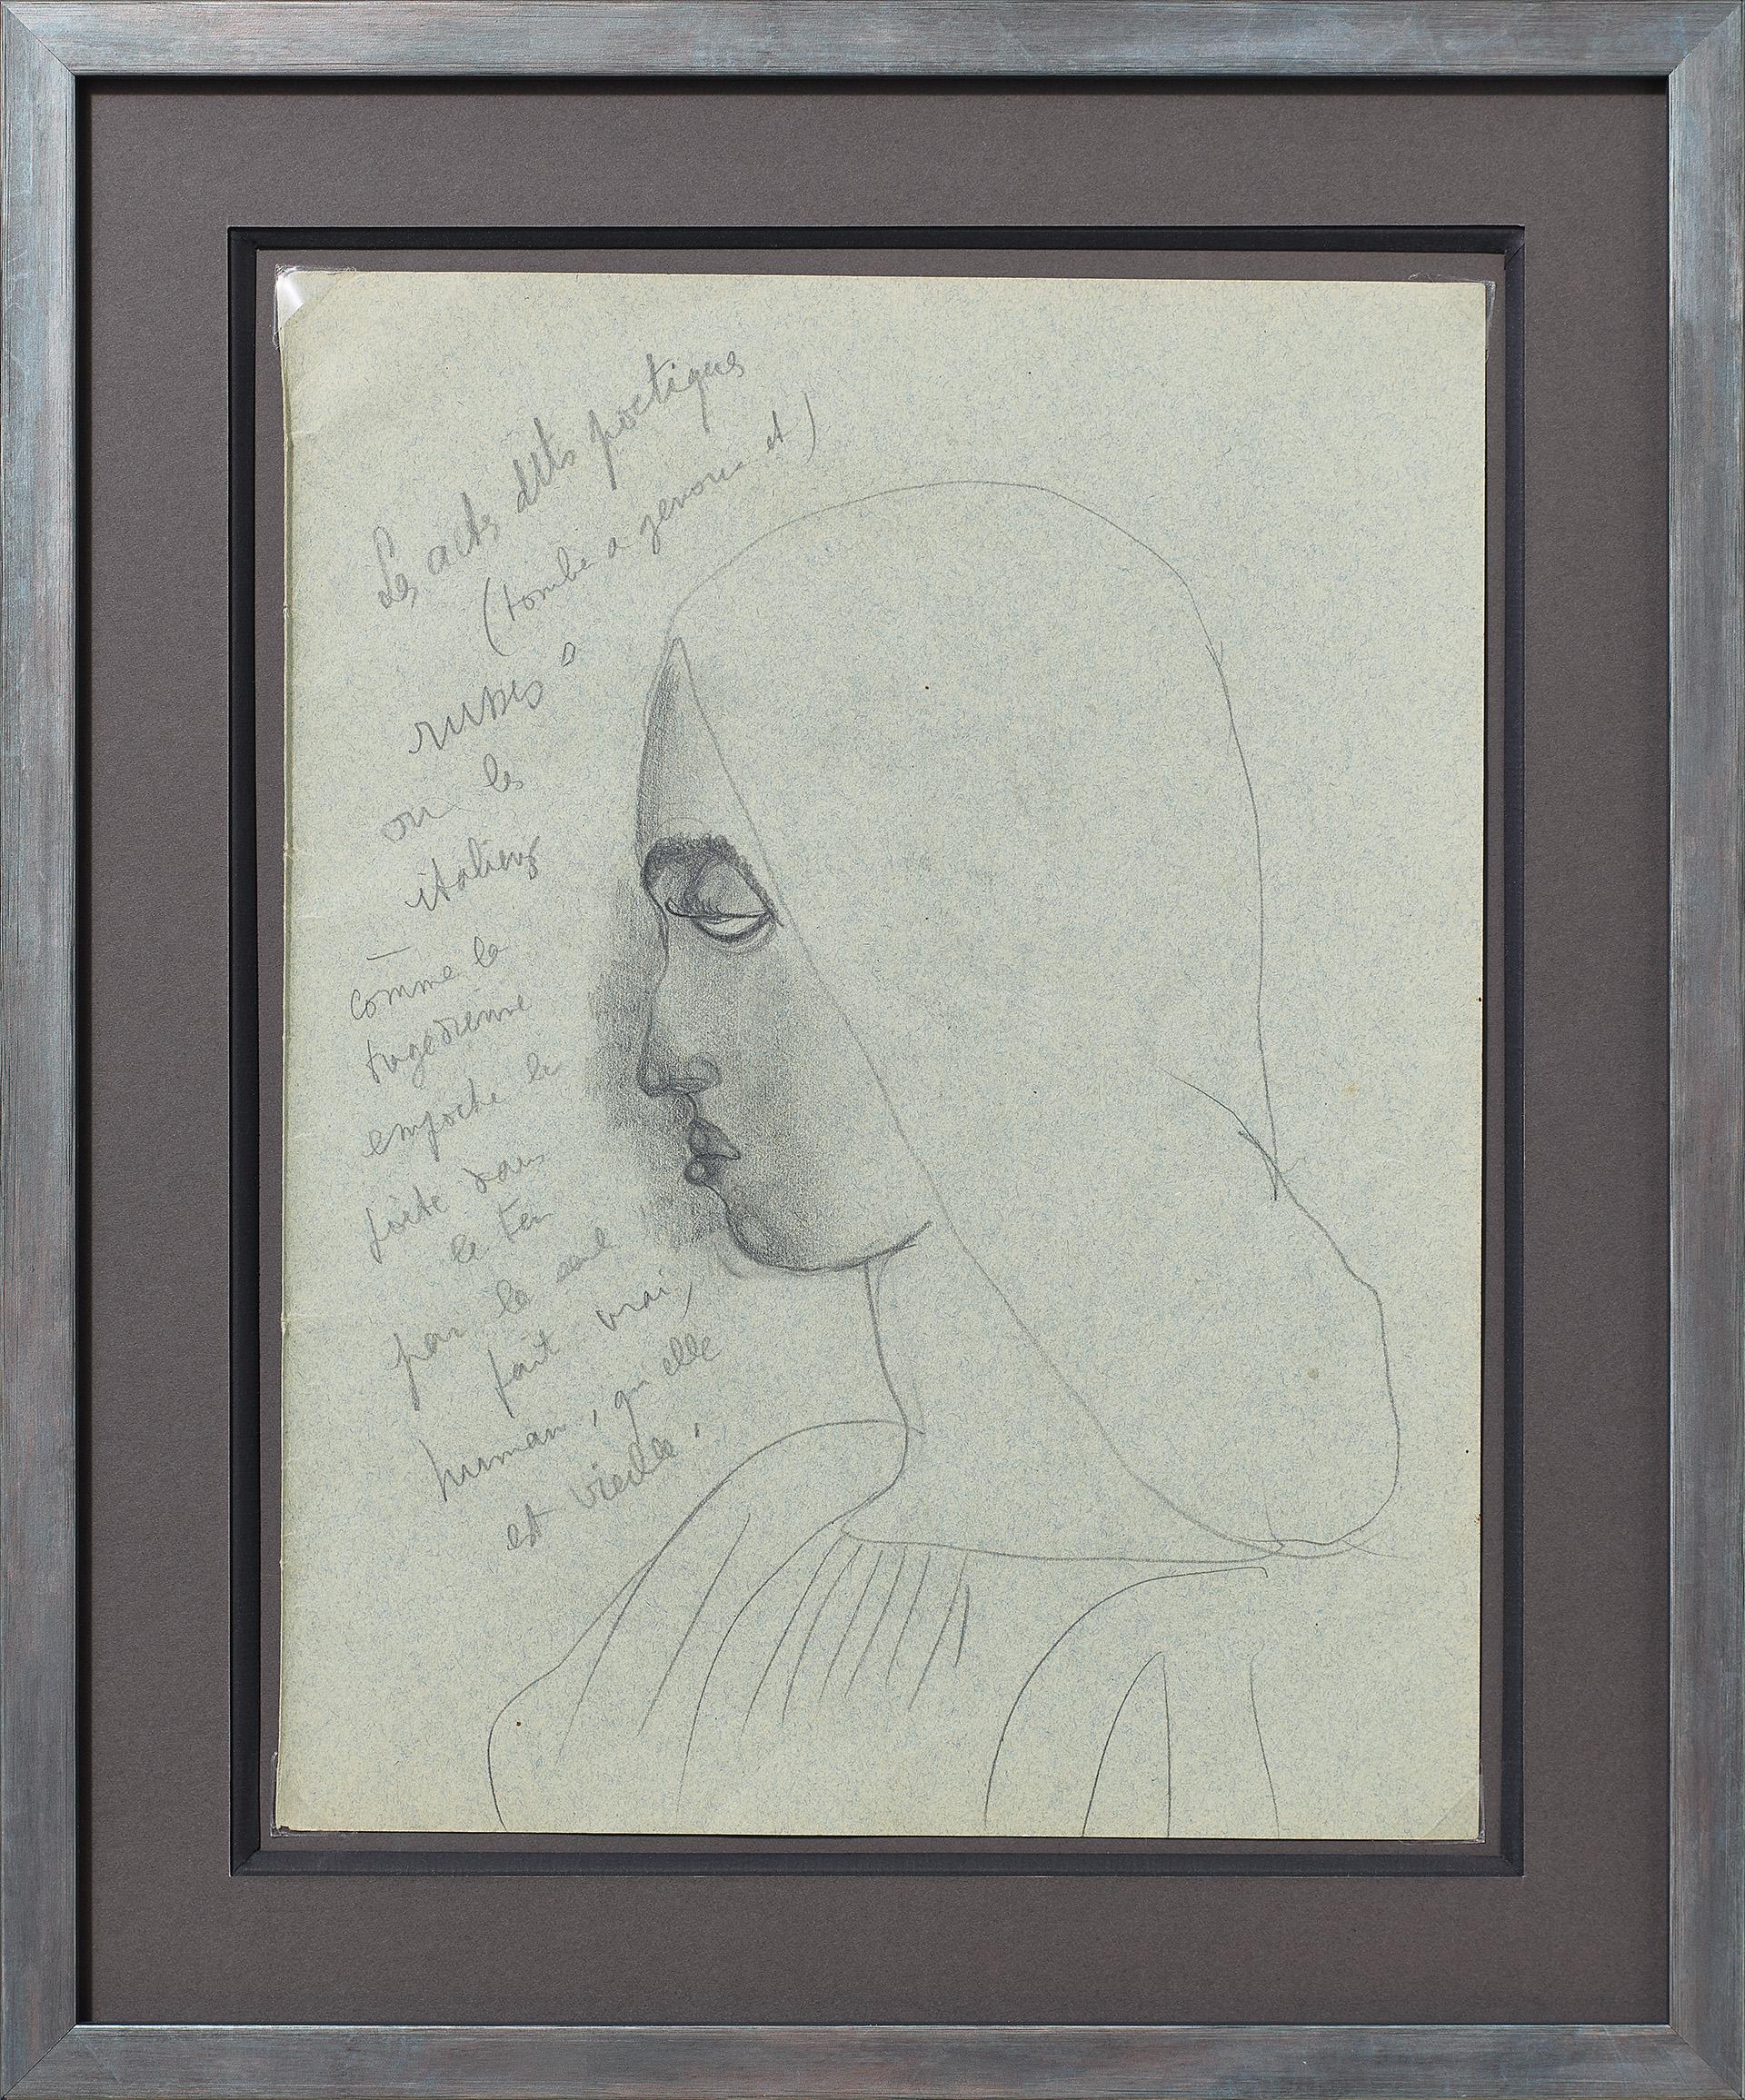 Les acts dits poetiques
(tombe a genoux et)
russes
ou les
italiens
comme la
tragedienne
empoche le
poète dans
le
par le seul
fait vrai,
humain, qu elle
est vieille.